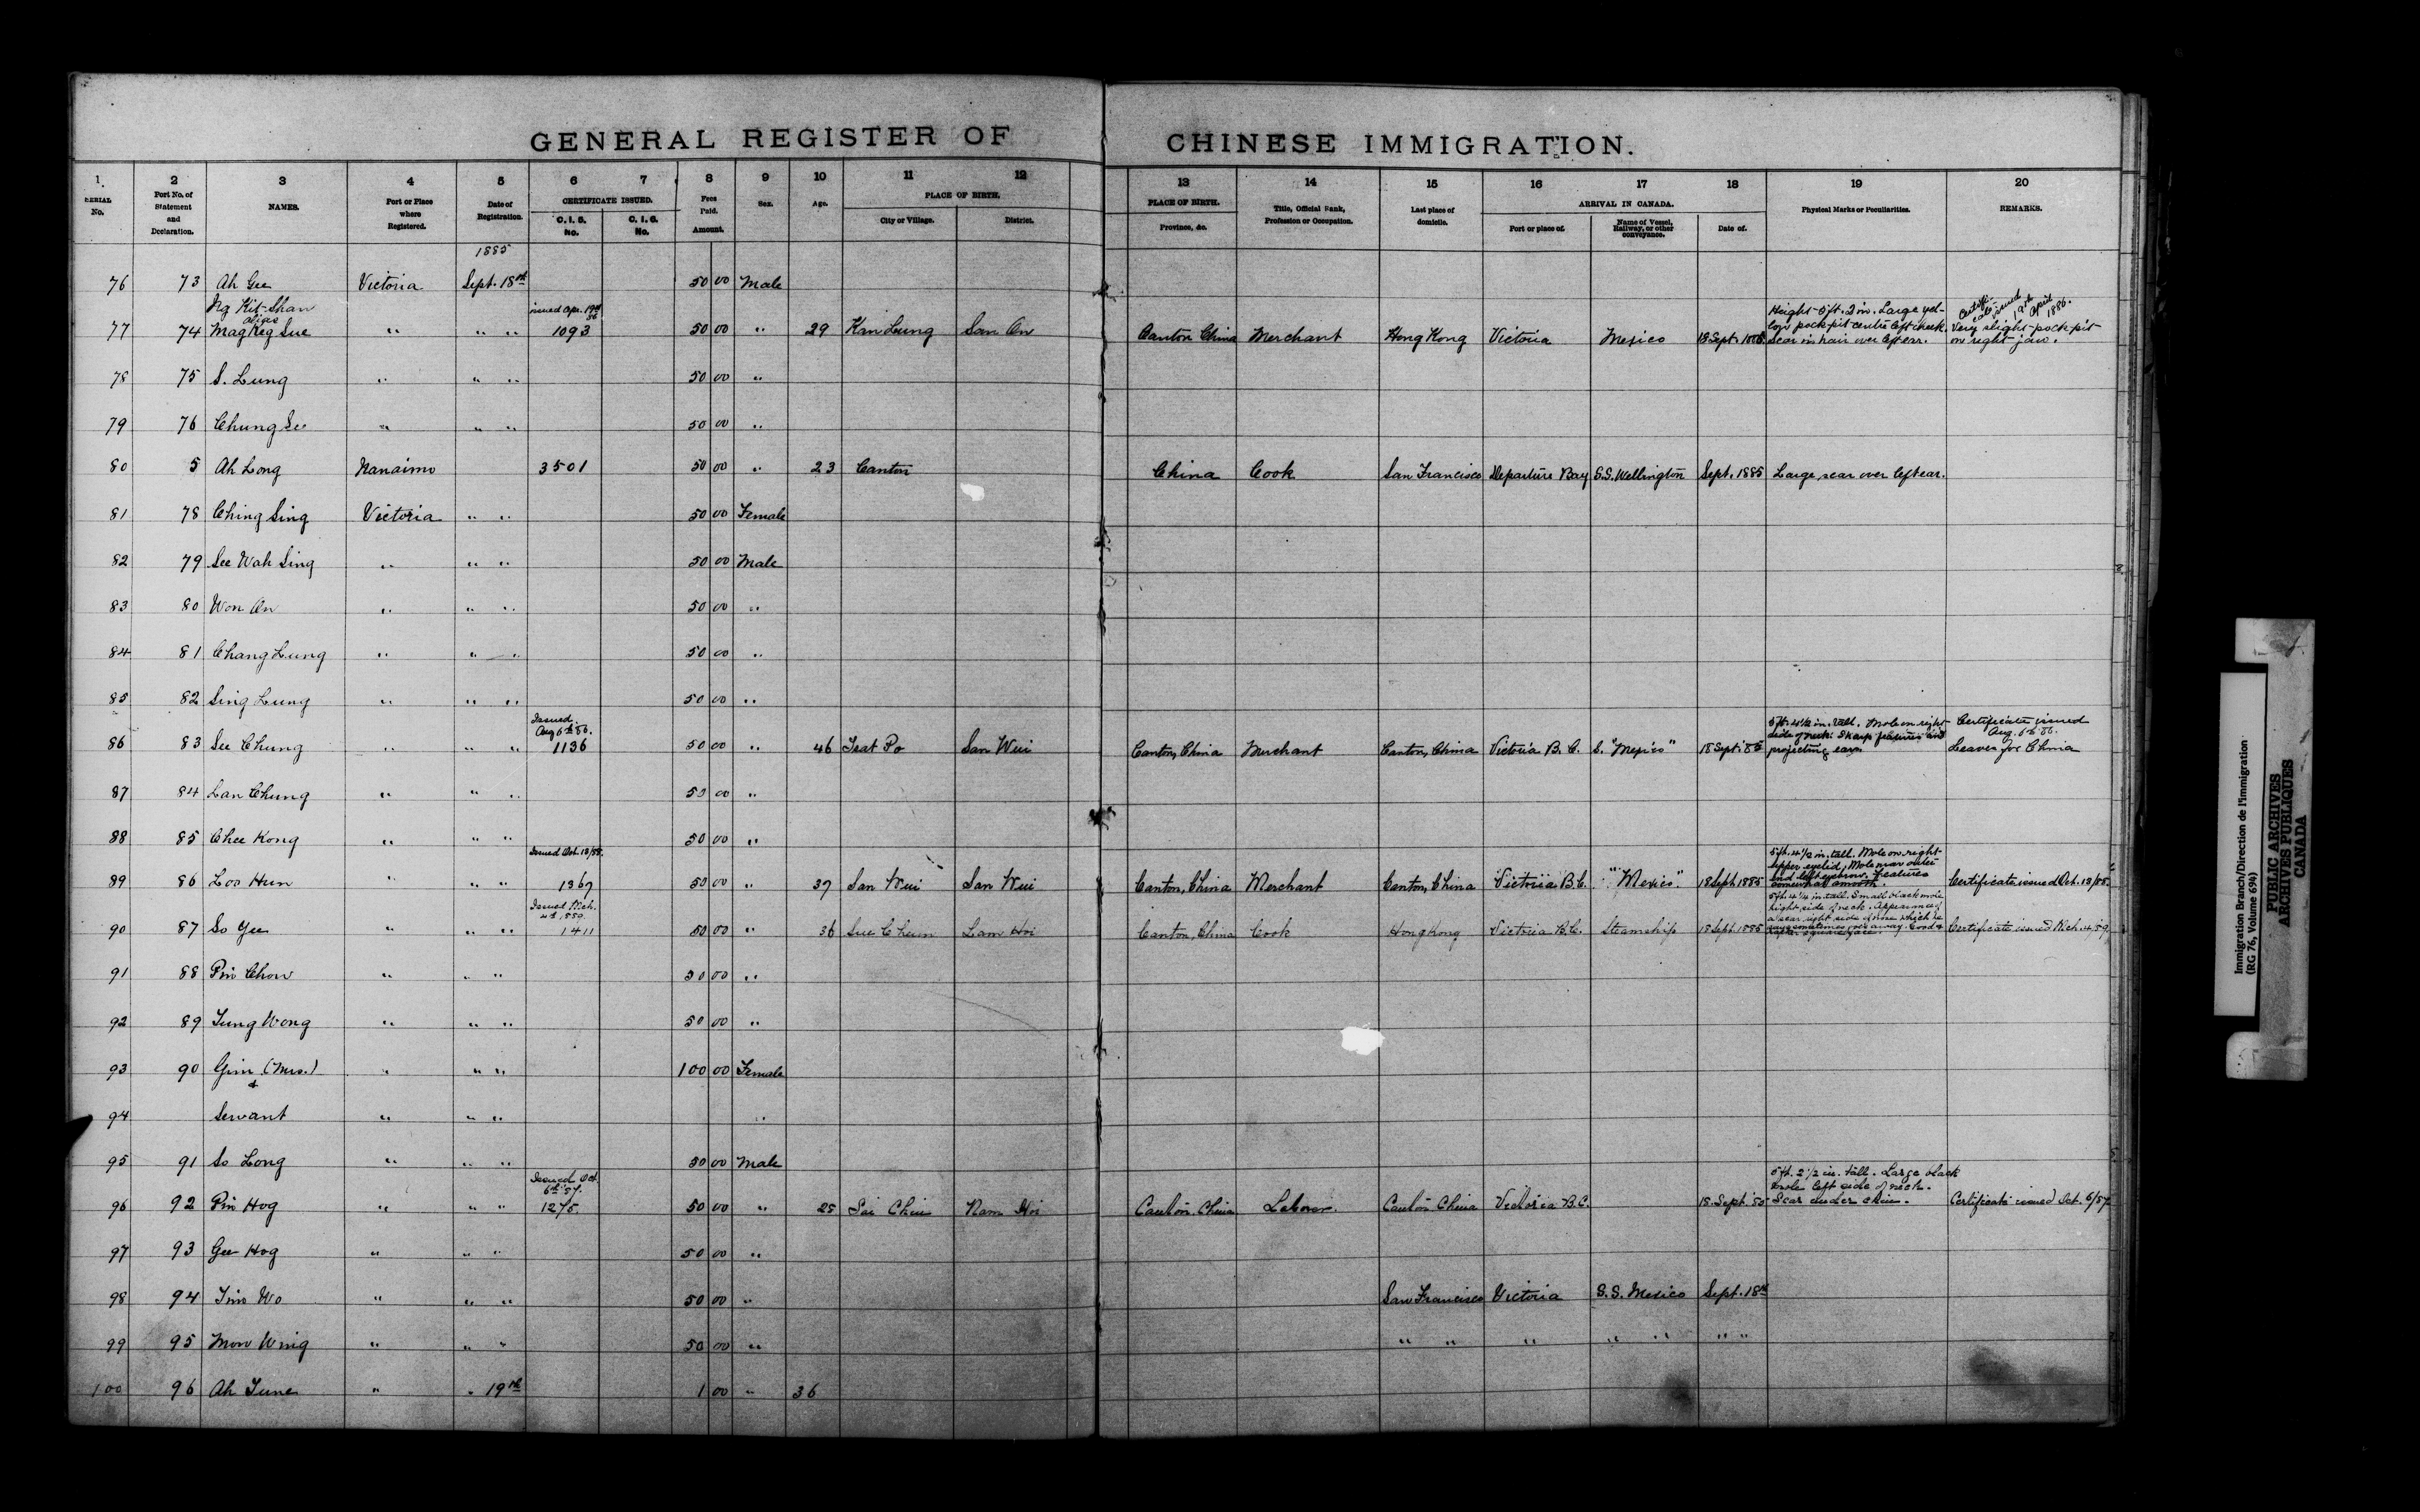 GENERAL REGISTER OF CHINESE IMMIGRATION.
1. 2 3 4 5 6 7 8 9 10 11 12 13 14 15 16 17 18 19 20
SERIAL No. Port No. of Statement and Declaration. NAMES. Port or Place where Registered. Date of Registration. CERTIFICATE ISSUED. C. I. 5. No. C. I. 6. No. Fees Paid. Amount. Sex. Age. PLACE OF BIRTH. City or Village. District. PLACE OF BIRTH. Province, &c. Title, Official Rank, Profession or Occupation. Last place of domicile. ARRIVAL IN CANADA. Port or place of. Name of Vessel, Railway, or other conveyance. Date of. Physical Marks or Peculiarities. REMARKS.
1885
76 73 Ah Gee Victoria Sept. 18th 50 00 Male
Ng Kit Shan alias
77 74 Mag Keg Sue " " " issued Apr. 19th 86 1093 50 00 " 29 Kan Lung San On Canton China Merchant Hong Kong Victoria Mexico 18 Sept. Height 5 ft. 2 in. Large yellow pock-pit centre left cheek. Scar in hair over left ear. Certificate issued 19th April 1886. Very slight pock-pit on right jaw.
78 75 S. Lung " " " 50 00 "
79 76 Chung See " " " 50 00 "
80 5 Ah Long Nanaimo 3501 50 00 " 23 Canton China Cook San Francisco Departure Bay S.S. Wellington Sept. 1885 Large scar over left ear.
81 78 Ching Sing Victoria " " 50 00 Female
82 79 See Wah Sing " " " 50 00 Male
83 80 Won On " " " 50 00 "
84 81 Chang Lung " " " 50 00 "
85 82 Sing Lung " " " 50 00 "
86 83 See Chung " " " Issued Aug 6th 86. 1136 50 00 " 46 Tsat Po San Wui Canton, China Merchant Canton, China Victoria B. C. S. "Mexico" 18 Sept. 85 5 ft. 4 1/2 in. tall. Mole on right side of neck. Sharp features and projecting ears. Certificate issued Aug. 6th 86. Leaves for China
87 84 Lan Chung " " " 50 00 "
88 85 Chee Kong " " " 50 00 "
89 86 Loo Hun " " " Issued Oct. 18/88. 1367 50 00 " 37 San Wui San Wui Canton, China Merchant Canton, China Victoria B.C. "Mexico." 18 Sept. 1885 5 ft. 4 1/2 in. tall. Mole on right upper eyelid. Mole near outer end left eyebrow. Features somewhat smooth. Certificate issued Oct. 18/88.
90 87 So Yee " " " Issued Mch. 4th 1889. 1411 50 00 " 36 Sue Chun Lam Hoi Canton, China Cook Hong Kong Victoria B.C. Steamship 18 Sept. 1885 5 ft. 4 1/4 in. tall. Small black mole right side of neck. Appearance of a scar right side of nose which he says sometimes goes away. Square face. Certificate issued Mch. 4.89.
91 88 Pin Chow " " " 50 00 "
92 89 Tung Wong " " " 50 00 "
93 90 Gim (Mrs.) " " " 100 00 Female
&
94 Servant " " " "
95 91 So Long " " " 50 00 Male
96 92 Pin Hog " " " Issued Oct. 6th 87. 1275. 50 00 " 25 Sai Chiu Nam Hoi Canton. China Laborer. Canton. China Victoria B.C. 18. Sept. 85 5 ft. 2 1/2 in. tall. Large black mole left side of neck. Scar under chin. Certificate issued Oct. 6/87.
97 93 Gee Hog " " " 50 00 "
98 94 Tim Wo " " " 50 00 " San Francisco Victoria S.S. Mexico Sept. 18th
99 95 Mow Wing " " " 50 00 " " " " " " " "
100 96 Ah June " " 19th 1 00 " 36
Immigration Branch/Direction de l'immigration
(RG 76, Volume 694)
PUBLIC ARCHIVES
ARCHIVES PUBLIQUES
CANADA